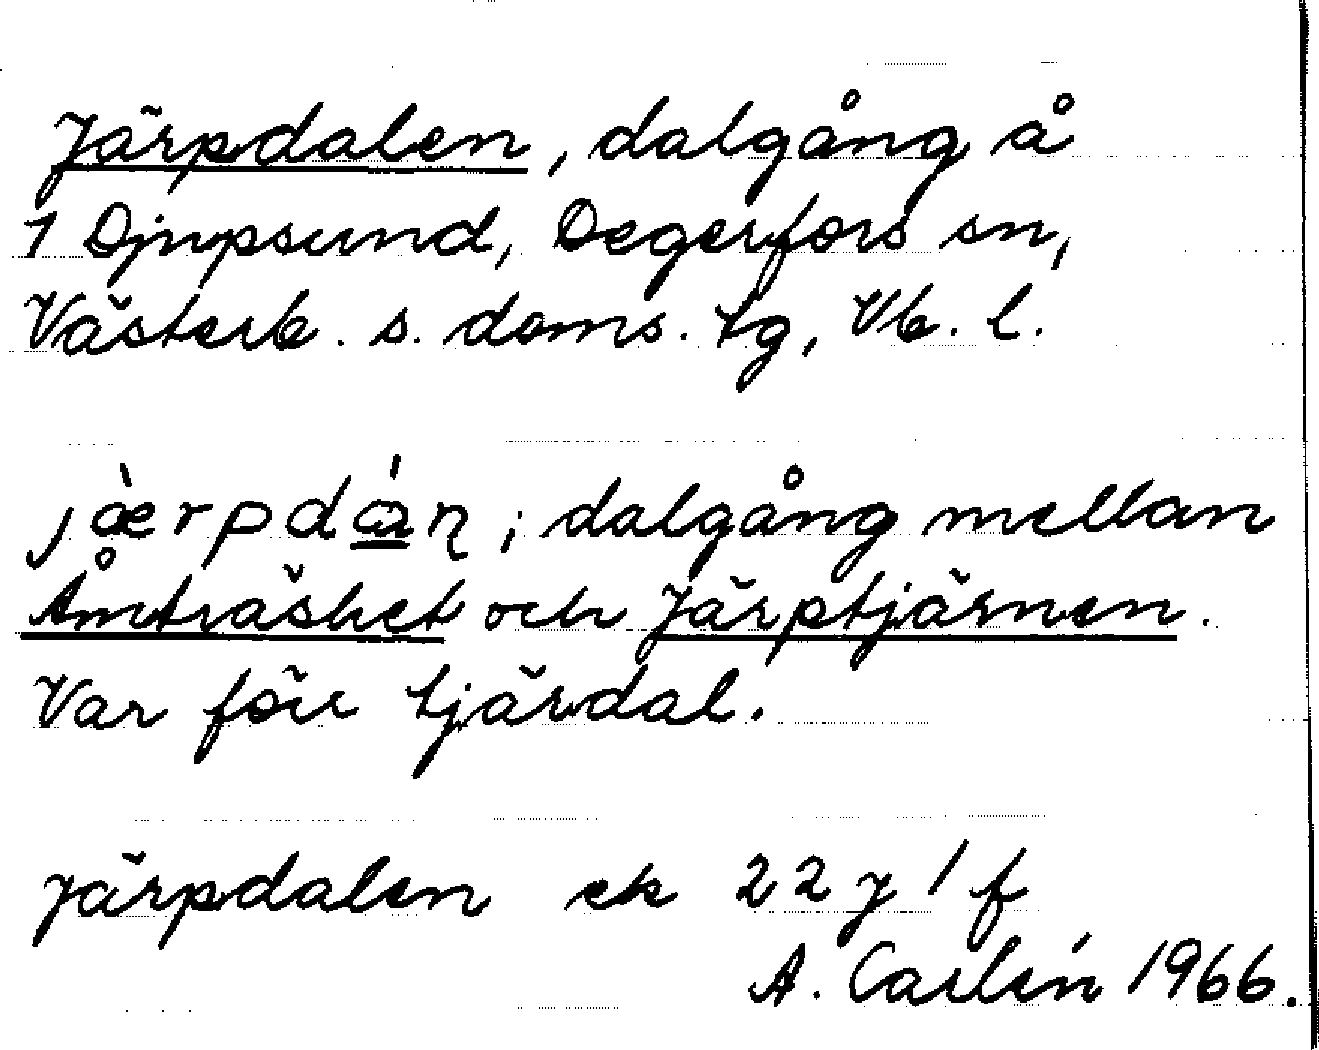 Järpdalen, dalgång å
1 Djupsund, Degerfors sn,
Västerb. s. doms. tg, Vb. l.
jæ̀rpdán; dalgång mellan
Åmträsket och Järptjärnen.
Var förr tjärdal.
Järpdalen ek 22 J 1 f
A. Carlén 1966.